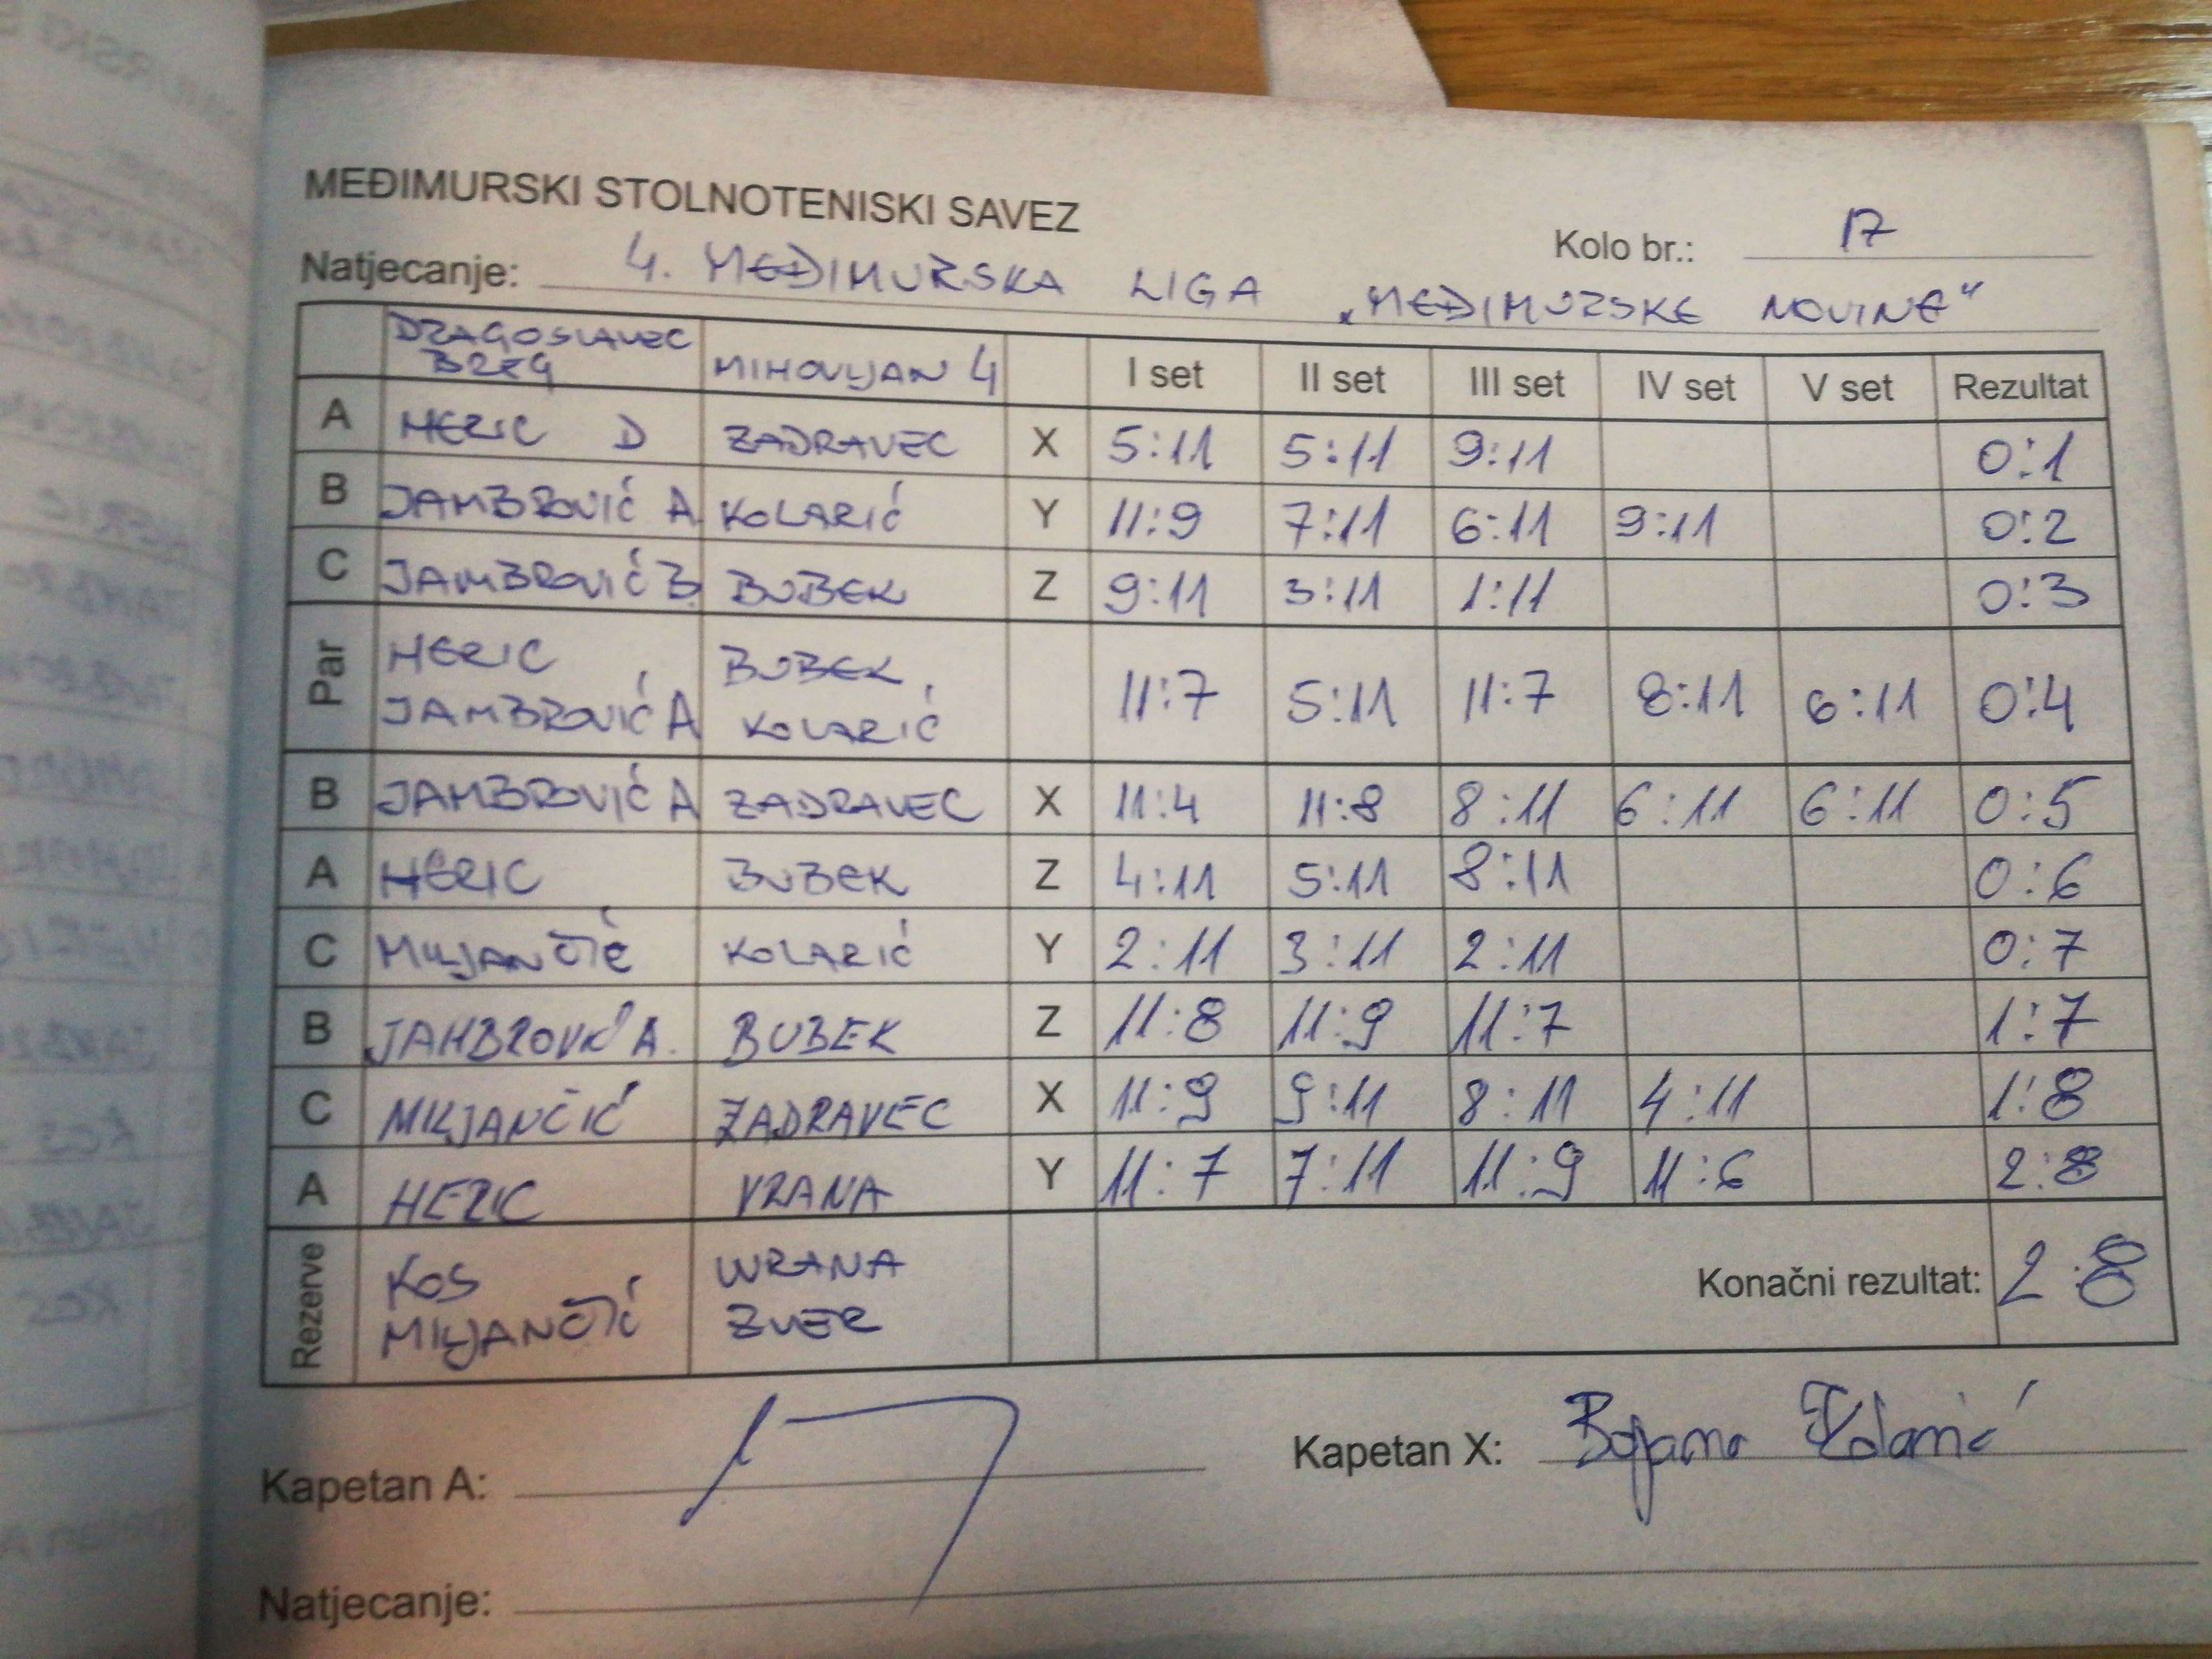 MEĐIMURSKI STOLNOTENISKI SAVEZ
Kolo br.: 17
Natjecanje: 4. MEĐIMURSKA LIGA "MEĐIMURSKE NOVINE"
DRAGOSLAVEC BREG MIHOVLJAN 4 I set II set III set IV set V set Rezultat
A HERIC D ZADRAVEC X 5:11 5:11 9:11 0:1
B JAMBROVIĆ A KOLARIĆ Y 11:9 7:11 6:11 9:11 0:2
C JAMBROVIĆ B. BUBEK Z 9:11 3:11 1:11 0:3
Par HERIC, JAMBROVIĆ A BUBEK, KOLARIĆ 11:7 5:11 11:7 8:11 6:11 0:4
B JAMBROVIĆ A ZADRAVEC X 11:4 11:8 8:11 6:11 6:11 0:5
A HERIC BUBEK Z 4:11 5:11 8:11 0:6
C MILJANČIĆ KOLARIĆ Y 2:11 3:11 2:11 0:7
B JAMBROVIĆ A. BUBEK Z 11:8 11:9 11:7 1:7
C MILJANČIĆ ZADRAVEC X 11:9 9:11 8:11 4:11 1:8
A HERIC VRANA Y 11:7 7:11 11:9 11:6 2:8
Rezerve KOS WRANA
MILJANČIĆ ZVER
Konačni rezultat: 2:8
Kapetan A:
Kapetan X: Bojana Kolarić
Natjecanje: